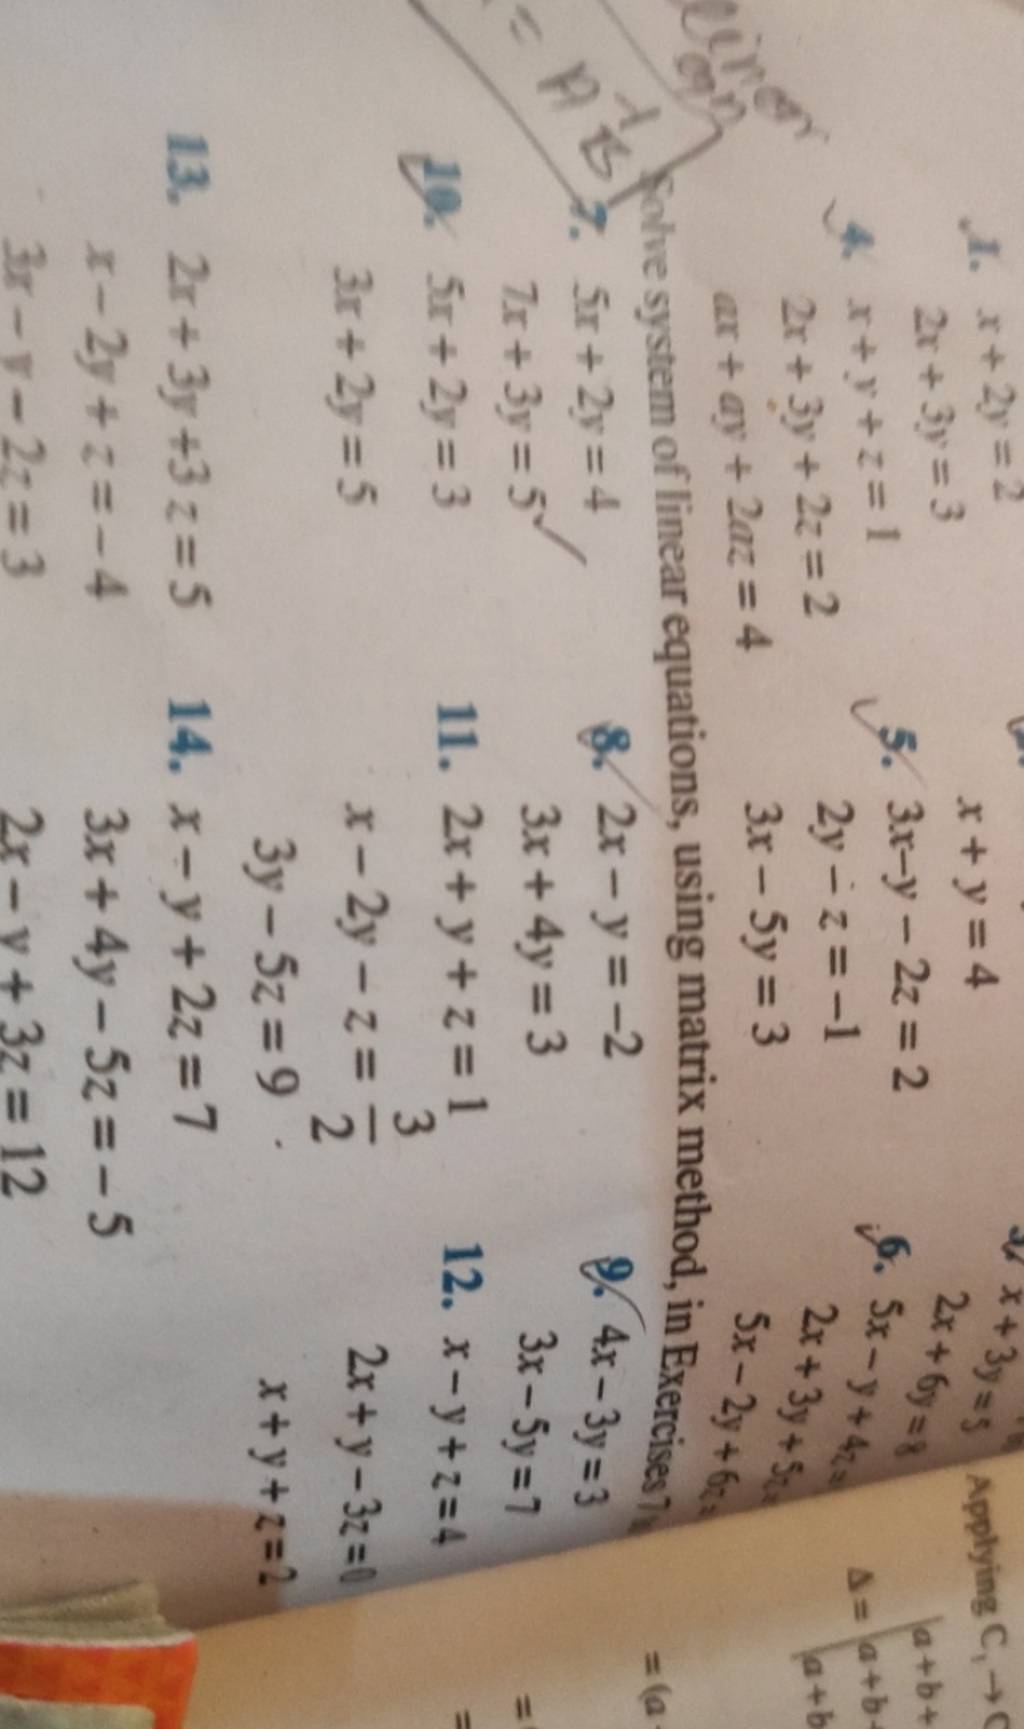 1. x + 2y = 2
2x + 3y = 3
x + y = 4
x + 3y = 5
2x + 6y = 8
4. x + y + z = 1
2x + 3y + 2z = 2
ax + ay + 2az = 4
5. 3x–y – 2z = 2
2y – z = –1
3x – 5y = 3
6. 5x – y + 4z =
2x + 3y + 5z =
5x – 2y + 6z =
Solve system of linear equations, using matrix method, in Exercises 7
7. 5x + 2y = 4
7x + 3y = 5
8. 2x – y = –2
3x + 4y = 3
9. 4x – 3y = 3
3x – 5y = 7
10. 5x + 2y = 3
3x + 2y = 5
11. 2x + y + z = 1
x – 2y – z = 3/2
3y – 5z = 9
12. x – y + z = 4
2x + y – 3z = 0
x + y + z = 2
13. 2x + 3y +3 z = 5
x – 2y + z = – 4
3x – y – 2z = 3
14. x – y + 2z = 7
3x + 4y – 5z = – 5
2x – y + 3z = 12
= A⁻¹B
Applying C₁ → C
Δ = |a + b +
|a + b
|a + b
= (a
=
=